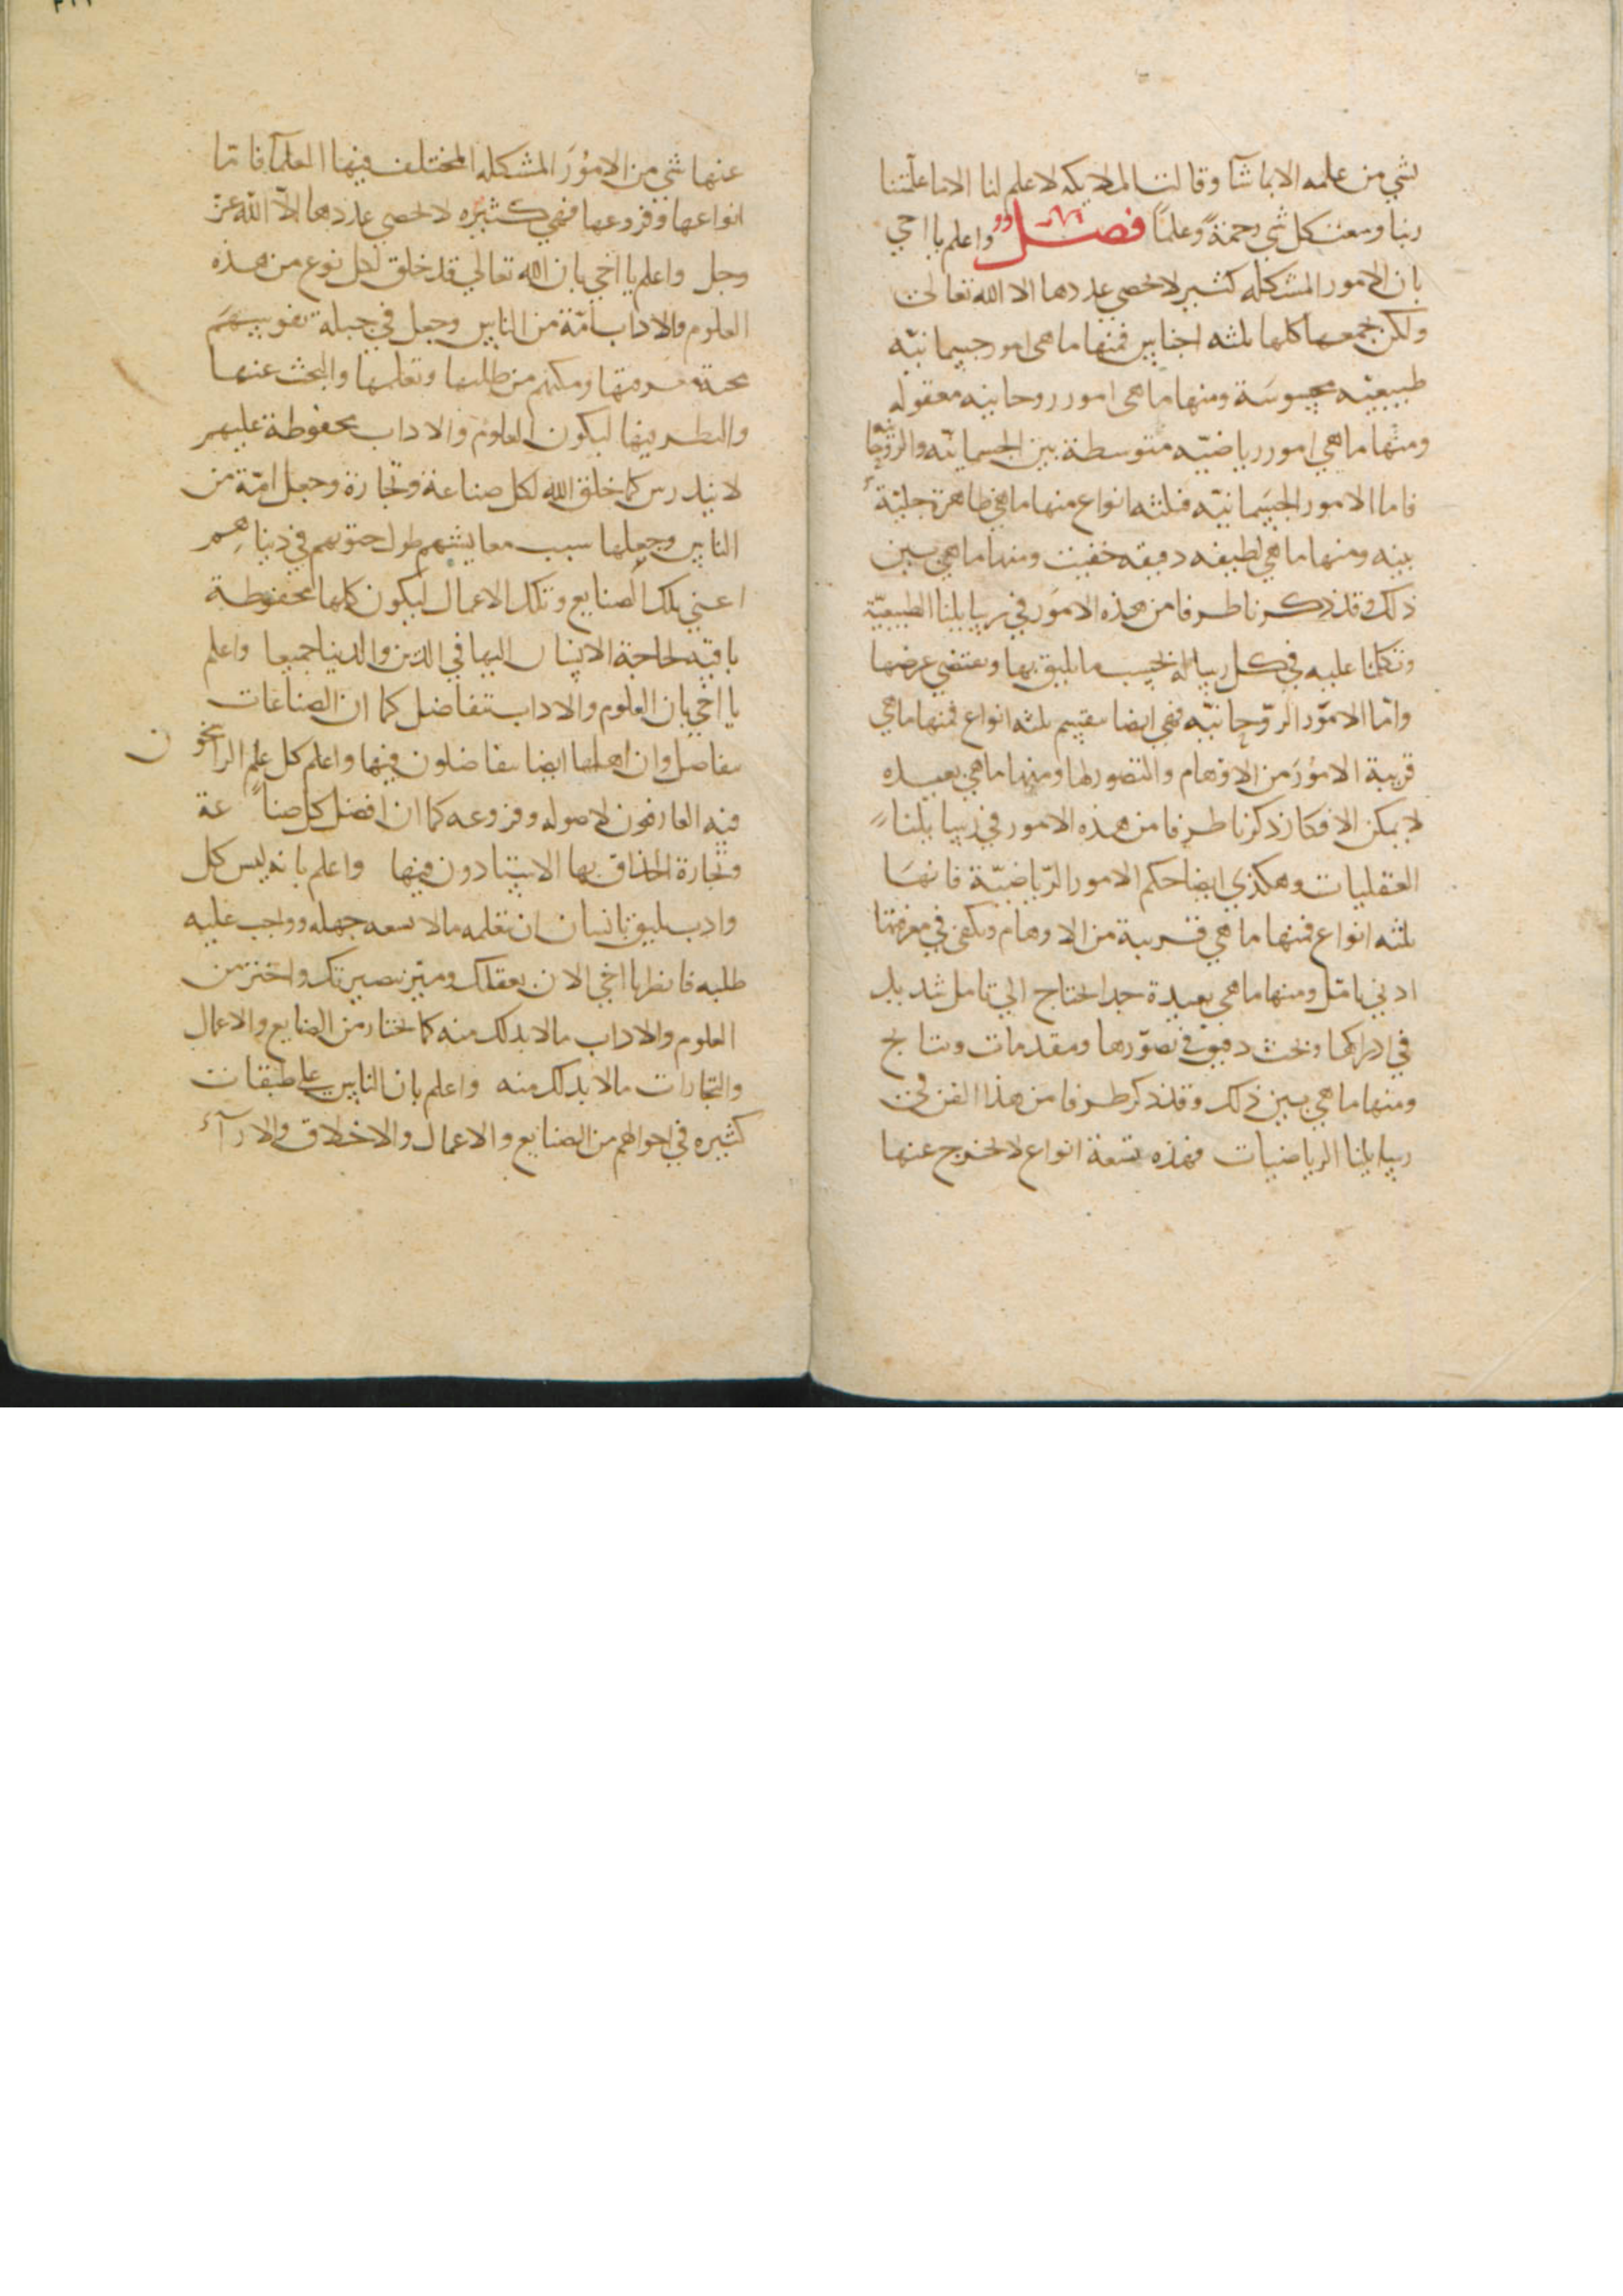 بشي من علمه الا بما شآ وقالت الملايكه لا علم لنا الا ما علمتنا
ربنا وسعت كل شي رحمة وعلما فصل واعلم يا اخي
بان الامور المشكله كثير لا يحصي عددها الا الله تعالى
ولكن يجمعها كلها ثلثه اجناس فمنها ما هى امور جسمانيه
طبيعيه محسوسة ومنها ما هى امور روحانيه معقوله
ومنها ما هي امور رياضيه متوسطة بين الجسمانيه والروحانيه
فاما الامور الجسمانيه فثلثه انواع منها ما هي ظاهرة جليّة
بينه ومنها ما هي لطيفه دقيقه خفيت ومنها ما هي بين
ذلك وقد ذكرنا طرفا من هذه الامور في رسايلنا الطبيعيّة
وتكلمنا عليه في كل رساله بحسب ما يليق بها ويقتضي غرضها
وامّا الامور الروحانيّه فهي ايضا تقسيم ثلثه انواع فمنها ما هي
قريبة الامور من الاوهام والتصور لها ومنها ما هي بعيده
لا يمكن الافكار ذكرنا طرفا من هذه الامور في رسايلنا
العقليات وهكذي ايضا حكم الامور الرّياضيّة فانها
ثلثه انواع فمنها ما هي قريبة من الاوهام ويكفى في معرفتها
ادني تامّل ومنها ما هي بعيدة جدا تحتاج الي تامل شديد
في ادراكها وبحث دقيق في تصوّرها ومقدمات ونتايج
ومنها ما هي بين ذلك وقد ذكر طرفا من هذا الفن في
رسايلنا الرياضيات فهذه تسعة انواع لا يخرج عنها
عنها شي من الامور المشكله المختلف فيها العلمآ فاما
انواعها وفروعها فهي كثيره لا يحصي عددها الاّ الله عز
وجل واعلم يا اخي بان الله تعالي قد خلق لكل نوع من هذه
العلوم والاداب امّة من الناس وجعل في جبلة نفوسهم
محبة معرفتها ومكنهم من طلبها وتعلمها والبحث عنها
والنظر فيها ليكون العلوم والاداب محفوظة عليهم
لا يندرس كما خلق الله لكل صناعة وتجارة وجعل امّة من
الناس وجعلها سبب معايشهم طول حيوتهم في دنياهم
اعني بتلك الصنايع وتلك الاعمال ليكون كلها محفوظة
باقيه لحاجة الانسان اليها في الدين والدنيا جميعا واعلم
يا اخي بان العلوم والاداب تتفاضل كما ان الصناعات
تتفاضل وان اهلها ايضا يتفاضلون فيها واعلم كل علم الراسخون
فيه العارفون لاصوله وفروعه كما ان افضل كل صناعة
وتجارة الحذاق بها الاستادون فيها واعلم بانه ليس كل
وادب يليق بانسان ان تعلمه ما لا يسعه جهله وواجب عليه
طلبه فانظر يا اخي الان بعقلك وميّز ببصيرتك واختر من
العلوم والاداب ما لا بد لك منه كما تختار من الصنايع والاعمال
والتجارات ما لا بد لك منه واعلم بان الناس علي طبقات
كثيره في احوالهم من الصنايع والاعمال والاخلاق والارآء